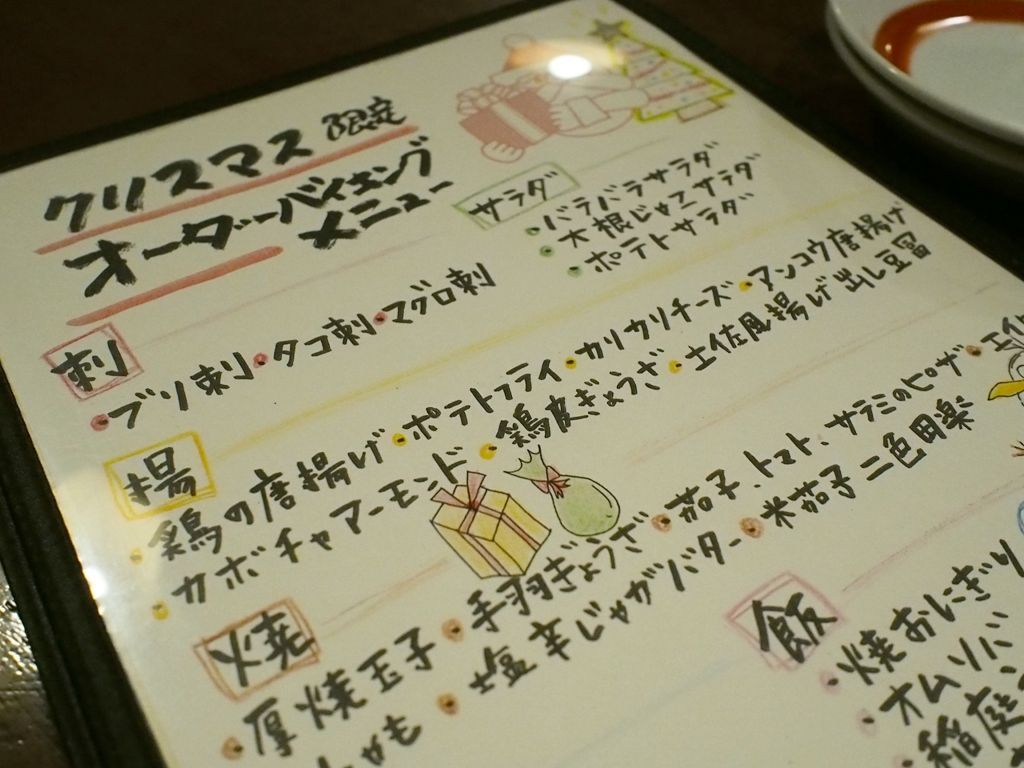 クリスマス 限定
オーダーバイキング
メニュー
サラダ
・バラバラサラダ
・大根じゃこサラダ
・ポテトサラダ
刺
・ブリ刺・タコ刺・マグロ刺
揚
・鶏の唐揚げ・ポテトフライ・カリカリチーズ・アンコウ唐揚げ
・カボチャアーモンド・鶏皮ぎょうざ・土佐風揚げ出し豆冨
焼
・厚焼玉子・手羽ぎょうざ・茄子、トマト、サラミのピザ
・塩辛じゃがバター・米茄子二色田楽
飯
・焼おにぎり
・オムソバ
・稲庭